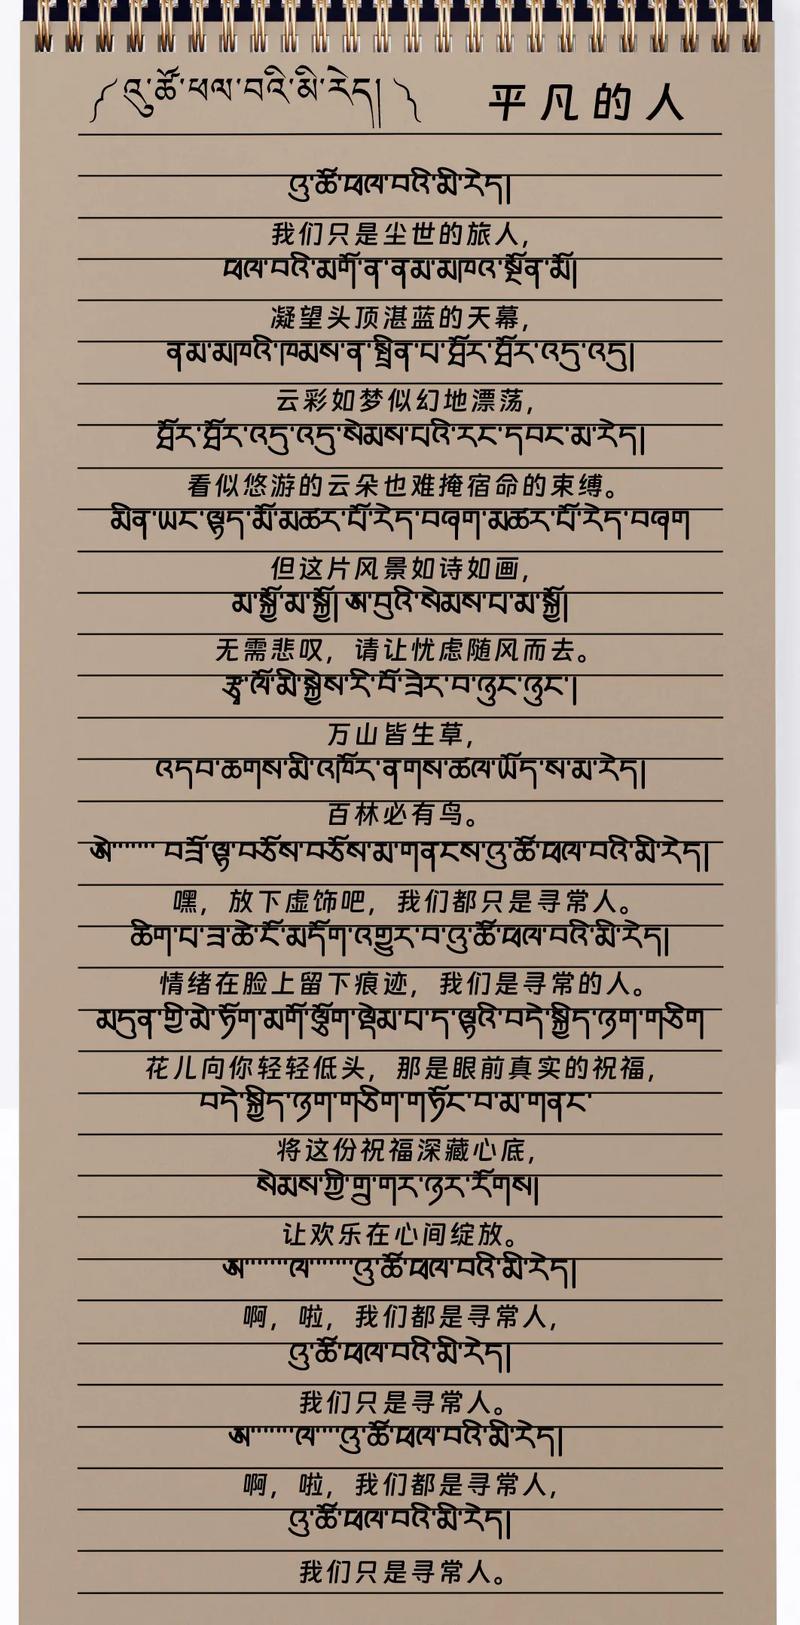 ༼ འུ་ཚོ་ཕལ་བའི་མི་རེད། ༽ 平凡的人
འུ་ཚོ་ཕལ་བའི་མི་རེད།
我们只是尘世的旅人，
ཕལ་བའི་མགོ་ན་ནམ་མཁའ་སྔོན་མོ།
凝望头顶湛蓝的天幕，
ནམ་མཁའི་ཁམས་ན་སྤྲིན་པ་ཐོར་ཐོར་འདུ་འདུ།
云彩如梦似幻地漂荡，
ཐོར་ཐོར་འདུ་འདུ་སེམས་པའི་རང་དབང་མ་རེད།
看似悠游的云朵也难掩宿命的束缚。
མིན་ཡང་ལྟད་མོ་མཚར་པོ་རེད་བཞག་མཚར་པོ་རེད་བཞག
但这片风景如诗如画，
མ་སྐྱོ་མ་སྐྱོ། ཨ་བུའི་སེམས་པ་མ་སྐྱོ།
无需悲叹，请让忧虑随风而去。
རྩྭ་ལོ་མི་སྐྱེས་རི་བོ་ཟེར་བ་ཉུང་ཉུང་།
万山皆生草，
འདབ་ཆགས་མི་འཁོར་ནགས་ཚལ་ཡོད་ས་མ་རེད།
百林必有鸟。
ཨེ་······· བཟོ་ལྟ་བཅོས་བཅོས་མ་གནངས་འུ་ཚོ་ཕལ་བའི་མི་རེད།
嘿，放下虚饰吧，我们都只是寻常人。
ཆིག་པ་ཟ་ཆེ་ངོ་མདོག་འགྱུར་བ་འུ་ཚོ་ཕལ་བའི་མི་རེད།
情绪在脸上留下痕迹，我们是寻常的人。
མདུན་གྱི་མེ་ཏོག་མགོ་ལྕོག་ལྡེམ་པ་ད་ལྟའི་བདེ་སྐྱིད་ཉག་གཅིག
花儿向你轻轻低头，那是眼前真实的祝福，
བདེ་སྐྱིད་ཉག་གཅིག་གཏོང་བ་མ་གནང་
将这份祝福深藏心底，
སེམས་ཀྱི་གྲུ་གར་ཉར་རོགས།
让欢乐在心间绽放。
ཨ་······ལ་······འུ་ཚོ་ཕལ་བའི་མི་རེད།
啊，啦，我们都是寻常人，
འུ་ཚོ་ཕལ་བའི་མི་རེད།
我们只是寻常人。
ཨ་······ལ་····འུ་ཚོ་ཕལ་བའི་མི་རེད།
啊，啦，我们都是寻常人，
འུ་ཚོ་ཕལ་བའི་མི་རེད།
我们只是寻常人。